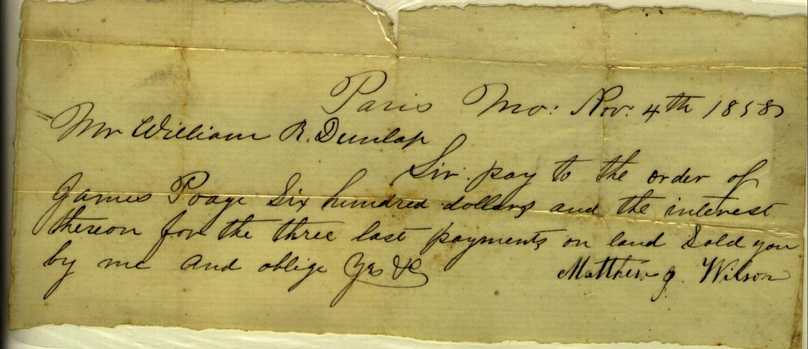 Paris Mo: Nov: 4th 1858
Mr William R. Dunlap
Sir: pay to the order of
James Poage Six hundred dollars and the interest
thereon for the three last payments on land Sold you
by me and oblige Yrs &c Matthew J. Wilson